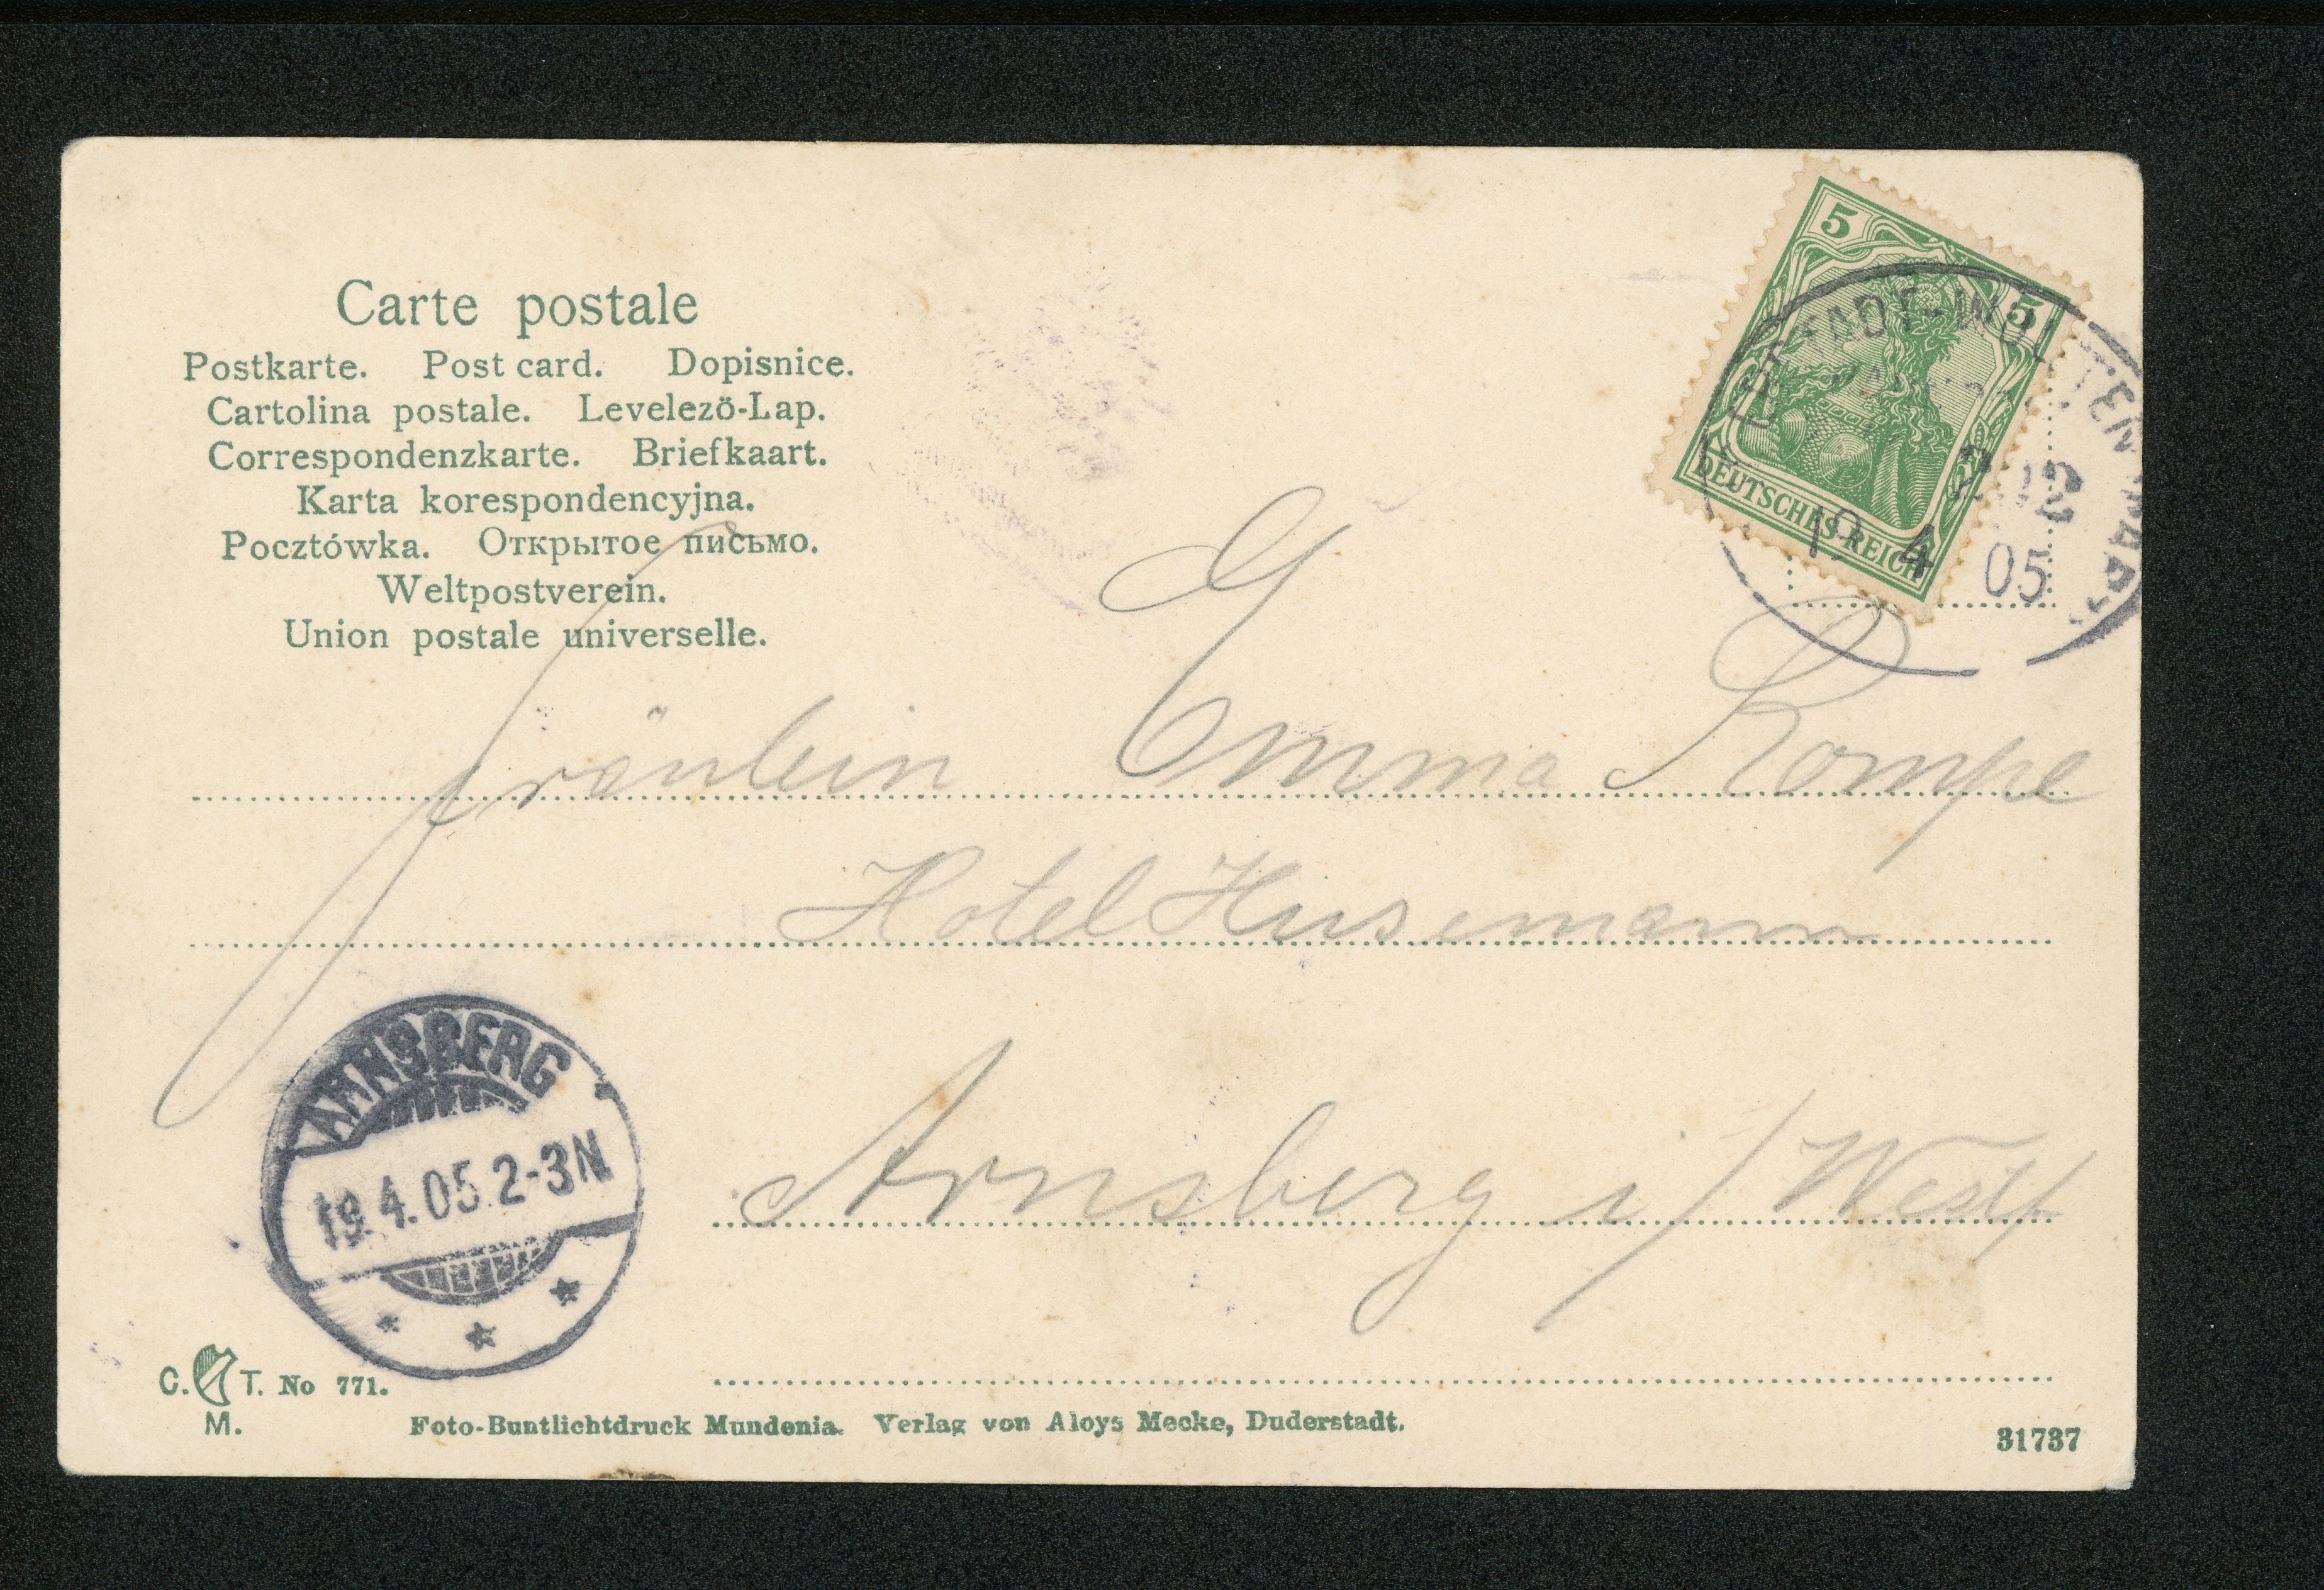 Carte postale
Postkarte. Post card. Dopisnice.
Cartolina postale. Levelezö-Lap.
Correspondenzkarte. Briefkaart.
Karta korespondencyjna.
Pocztówka. Открытое письмо.
Weltpostverein.
Union postale universelle.
5 5
DEUTSCHES REICH
19 4 05
Fräulein Emma Kompe
Hotel Husemann
Arnsberg i/Westf
ARNSBERG
19.4.05.2-3N
C. T. No 771.
M.
Foto-Buntlichtdruck Mundenia. Verlag von Aloys Mecke, Duderstadt.
31737